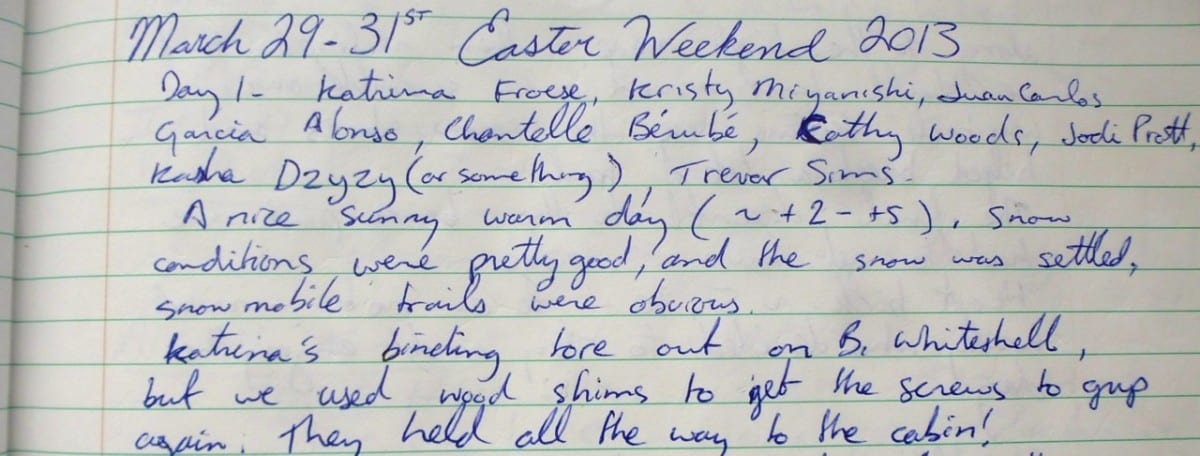 March 29-31ST Easter Weekend 2013
Day 1- Katrina Froese, Kristy Miyanishi, Juan Carlos
Garcia Alonso, Chantelle Bérubé, Cathy Woods, Jodi Prott,
Kasha Dzyzy (or something), Trevor Sims.
A nice sunny warm day (~ +2 - +5). Snow
conditions were pretty good, and the snow was settled,
snowmobile trails were obvious.
Katrina's binding tore out on B. Whiteshell,
but we used wood shims to get the screws to grip
again. They held all the way to the cabin!